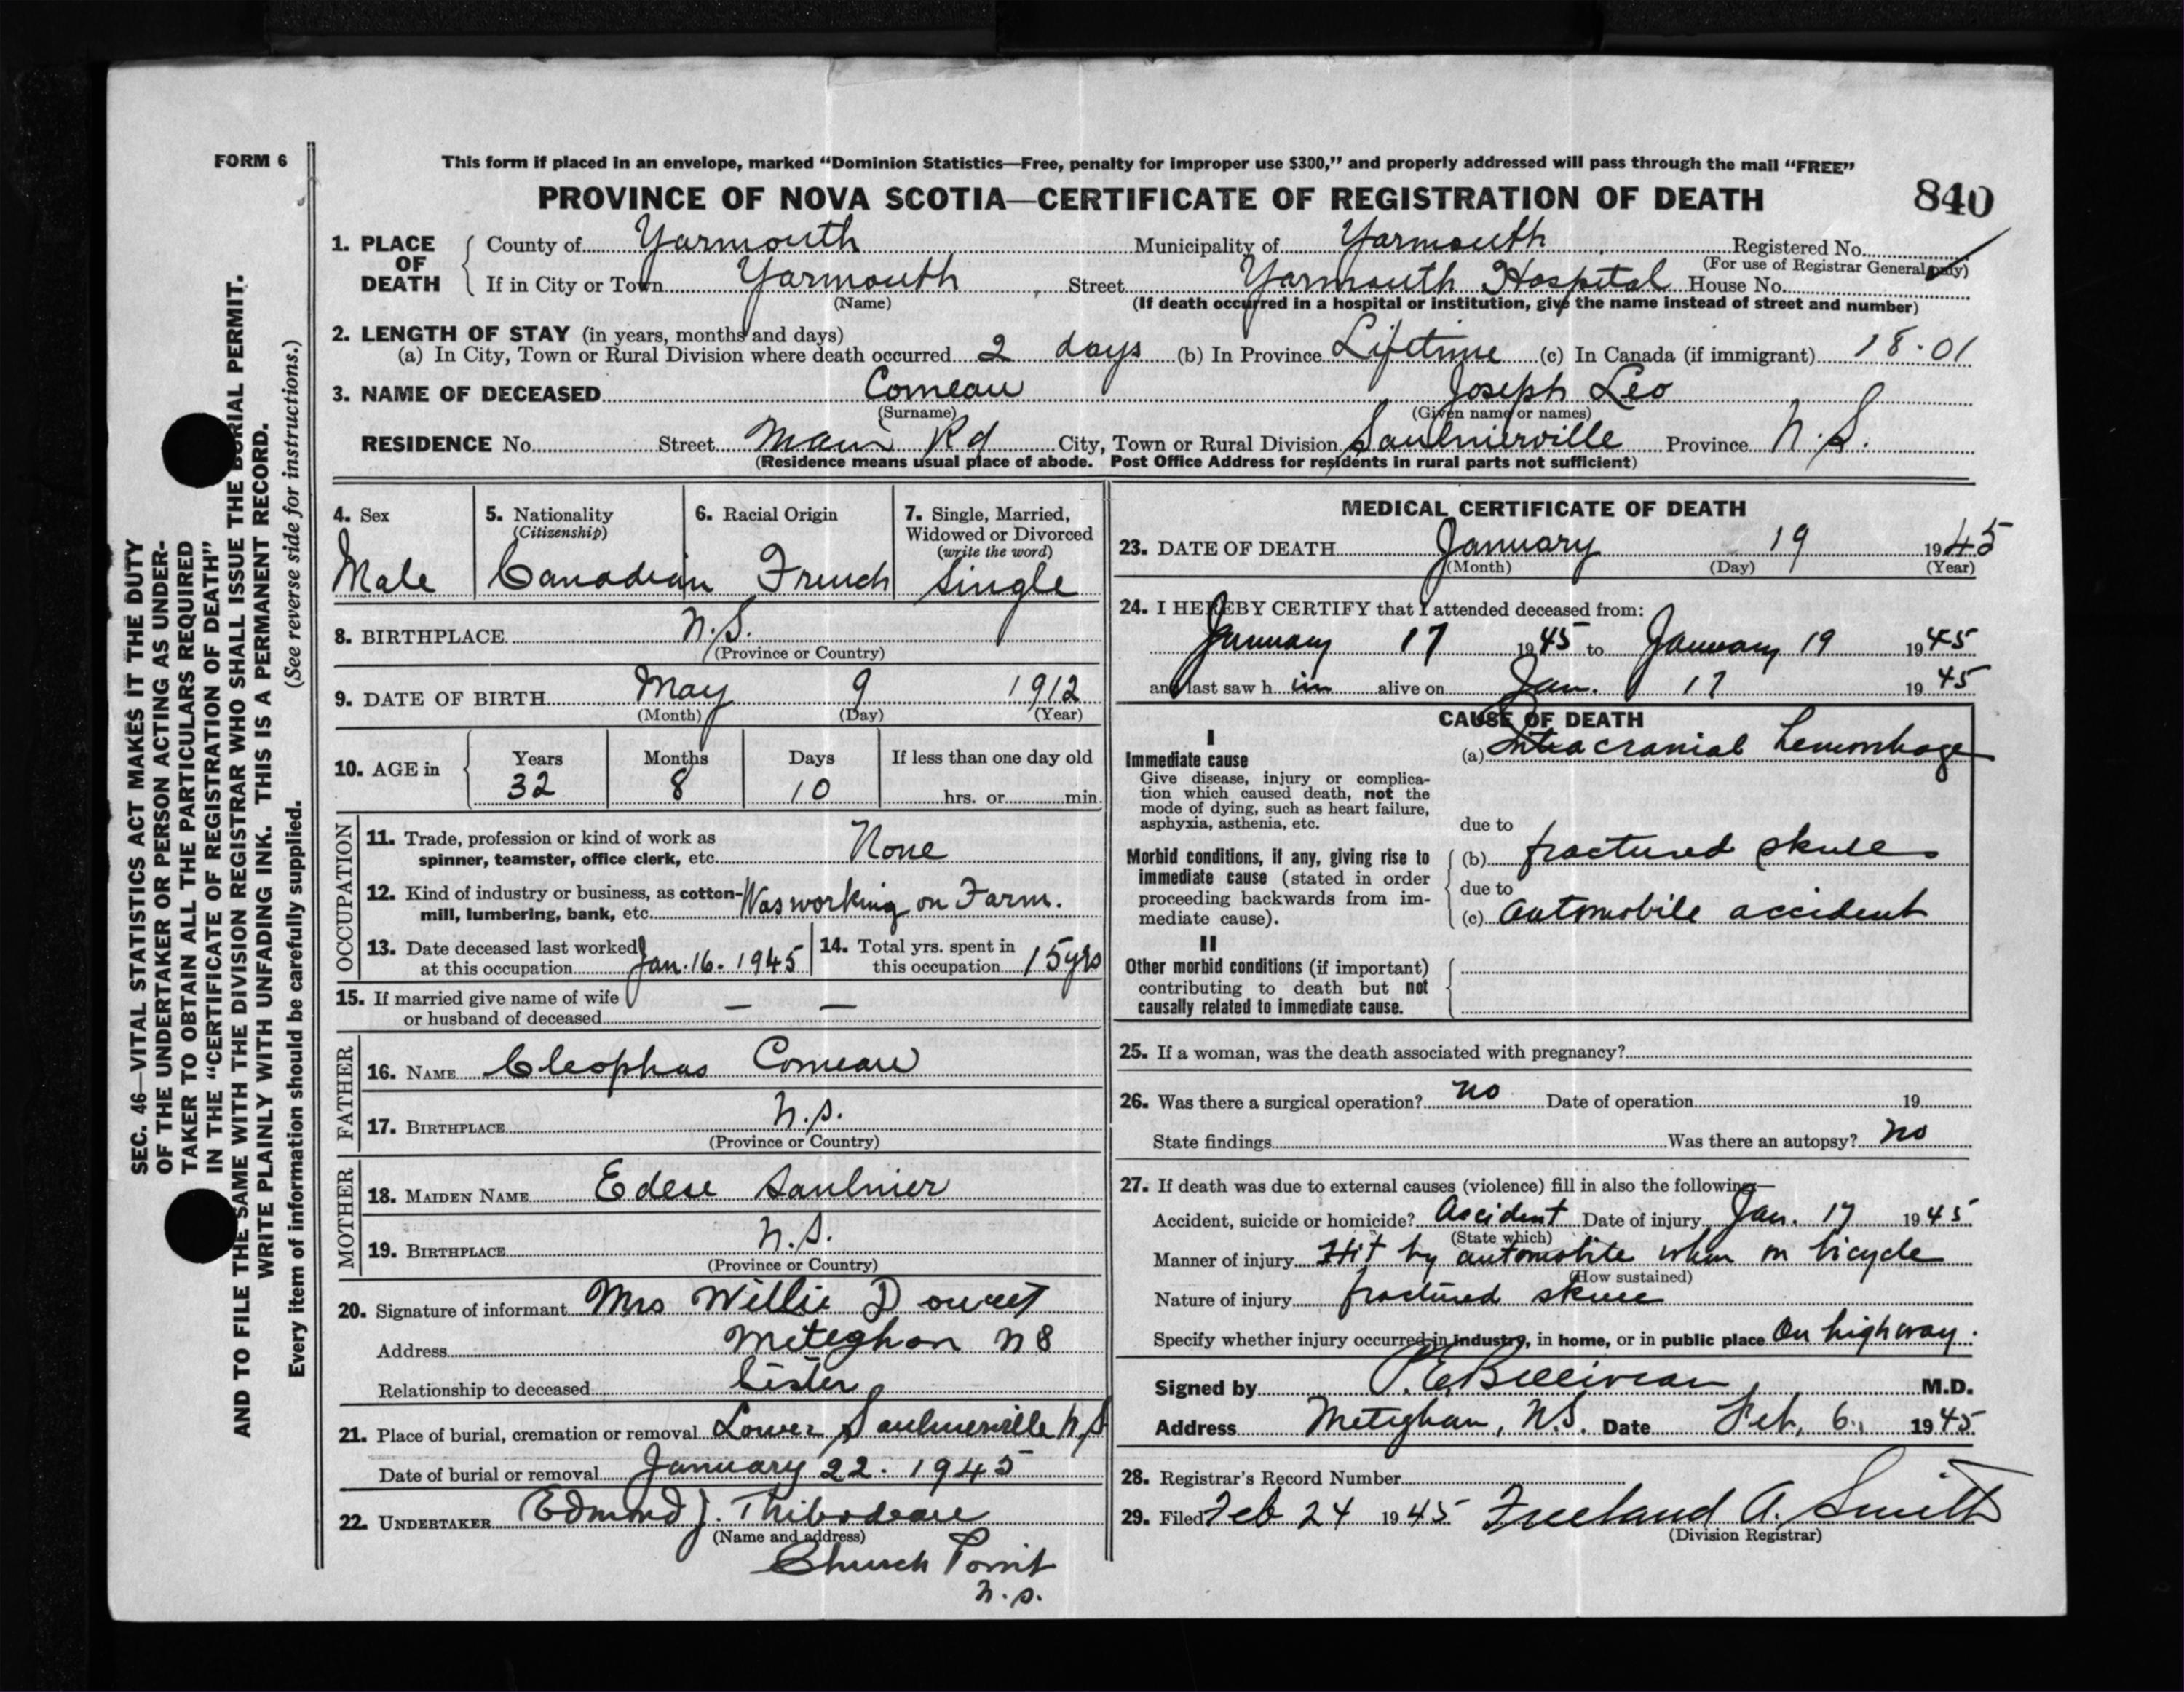 FORM 6
This form if placed in an envelope, marked “Dominion Statistics—Free, penalty for improper use $300,” and properly addressed will pass through the mail “FREE”
PROVINCE OF NOVA SCOTIA—CERTIFICATE OF REGISTRATION OF DEATH
840
1. PLACE OF DEATH { County of Yarmouth Municipality of Yarmouth Registered No.
(For use of Registrar General only)
If in City or Town Yarmouth Street Yarmouth Hospital House No.
(Name) (If death occurred in a hospital or institution, give the name instead of street and number)
2. LENGTH OF STAY (in years, months and days)
(a) In City, Town or Rural Division where death occurred 2 days (b) In Province Lifetime (c) In Canada (if immigrant) 18·01
3. NAME OF DECEASED Comeau Joseph Leo
(Surname) (Given name or names)
RESIDENCE No. Street Main Rd City, Town or Rural Division Saulnierville Province N.S.
(Residence means usual place of abode. Post Office Address for residents in rural parts not sufficient)
4. Sex
Male
5. Nationality
(Citizenship)
Canadian
6. Racial Origin
French
7. Single, Married,
Widowed or Divorced
(write the word)
Single
8. BIRTHPLACE N.S.
(Province or Country)
9. DATE OF BIRTH May 9 1912
(Month) (Day) (Year)
10. AGE in { Years Months Days If less than one day old
32 8 10 hrs. or min.
OCCUPATION
11. Trade, profession or kind of work as
spinner, teamster, office clerk, etc. None
12. Kind of industry or business, as cotton-
mill, lumbering, bank, etc. Was working on Farm.
13. Date deceased last worked
at this occupation Jan. 16. 1945
14. Total yrs. spent in
this occupation 15 yrs
15. If married give name of wife
or husband of deceased — —
FATHER
16. NAME Cleophas Comeau
17. BIRTHPLACE N.S.
(Province or Country)
MOTHER
18. MAIDEN NAME Edese Saulnier
19. BIRTHPLACE N.S.
(Province or Country)
20. Signature of informant Mrs Willie Doucet
Address Meteghan N S
Relationship to deceased Sister
21. Place of burial, cremation or removal Lower Saulnierville N.S
Date of burial or removal January 22. 1945
22. UNDERTAKER Edmond J. Thibodeau
(Name and address)
Church Point
N.S.
MEDICAL CERTIFICATE OF DEATH
23. DATE OF DEATH January 19 1945
(Month) (Day) (Year)
24. I HEREBY CERTIFY that I attended deceased from:
January 17 1945 to January 19 1945
and last saw h im alive on Jan. 17 1945
CAUSE OF DEATH
I
Immediate cause
Give disease, injury or complica-
tion which caused death, not the
mode of dying, such as heart failure,
asphyxia, asthenia, etc.
(a) Intracranial hemorrhage
due to
Morbid conditions, if any, giving rise to
immediate cause (stated in order
proceeding backwards from im-
mediate cause).
(b) fractured skull
due to
(c) automobile accident
II
Other morbid conditions (if important)
contributing to death but not
causally related to immediate cause.
25. If a woman, was the death associated with pregnancy?
26. Was there a surgical operation? no Date of operation 19
State findings Was there an autopsy? no
27. If death was due to external causes (violence) fill in also the following—
Accident, suicide or homicide? Accident Date of injury Jan. 17 1945
(State which)
Manner of injury Hit by automobile when on bicycle
(How sustained)
Nature of injury fractured skull
Specify whether injury occurred in industry, in home, or in public place On highway.
Signed by P.E. Belliveau M.D.
Address Meteghan, N.S. Date Feb. 6, 1945
28. Registrar's Record Number
29. Filed Feb 24 1945 Freeland A. Smith
(Division Registrar)
SEC. 46—VITAL STATISTICS ACT MAKES IT THE DUTY
OF THE UNDERTAKER OR PERSON ACTING AS UNDER-
TAKER TO OBTAIN ALL THE PARTICULARS REQUIRED
IN THE “CERTIFICATE OF REGISTRATION OF DEATH”
AND TO FILE THE SAME WITH THE DIVISION REGISTRAR WHO SHALL ISSUE THE BURIAL PERMIT.
WRITE PLAINLY WITH UNFADING INK. THIS IS A PERMANENT RECORD.
Every item of information should be carefully supplied. (See reverse side for instructions.)